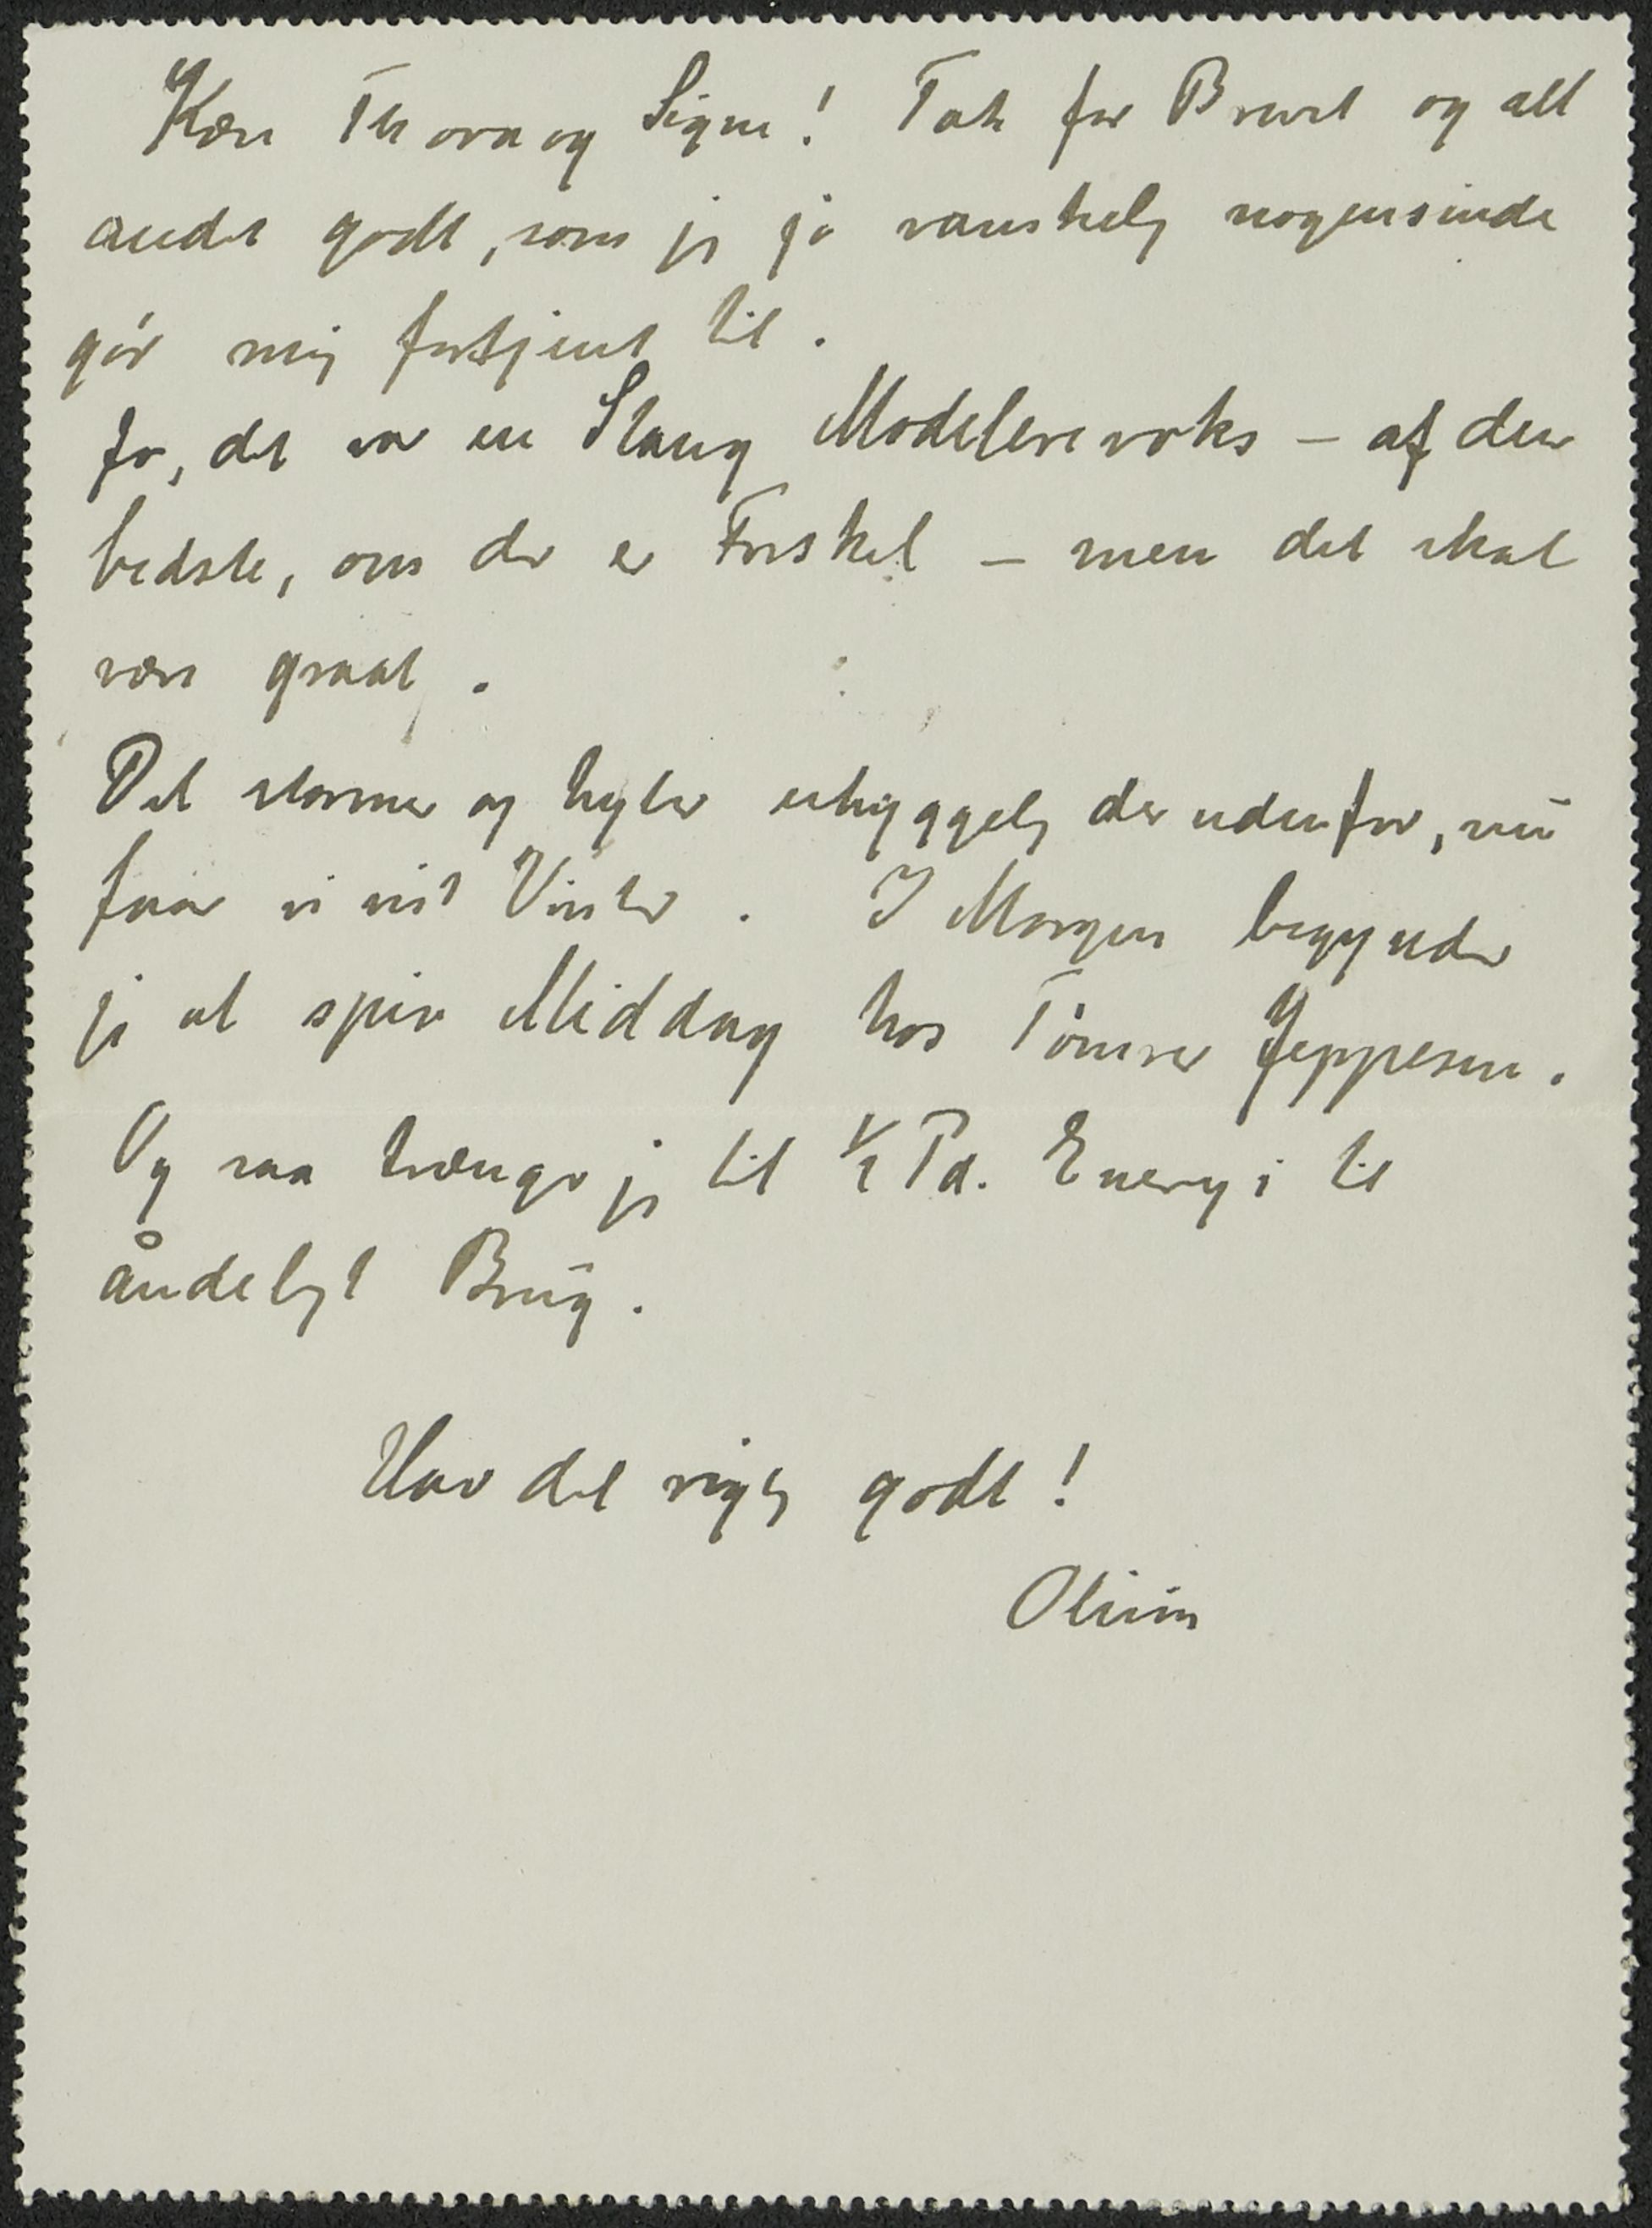 Kære Thora og Signe! Tak for Brevet og alt
andet godt, som jeg jo vanskelig nogensinde
gør mig fortjent til.
Jo, det var en Stang Modelervoks – af den
bedste, om der er Forskel – men det skal
være graat.
Det stormer og hyler uhyggelig der udenfor, nu
faar vi vist Vinter. I Morgen begynder
jeg at spise Middag hos Tømrer Jeppesen.
Og saa trænger jeg til ½ Pd. Energi til
åndeligt Brug.
Hav det rigtig godt!